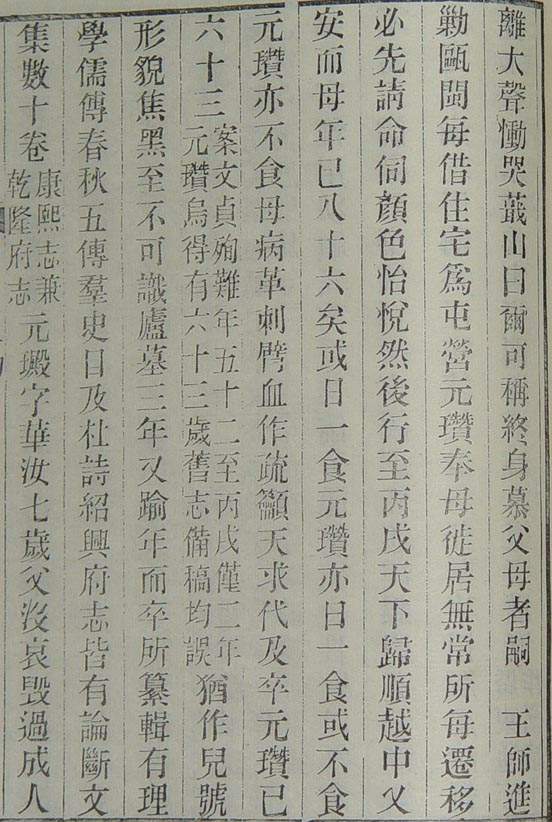 離大聲慟哭蕺山曰爾可稱終身慕父母者嗣　王師進
勦甌閩每借住宅為屯營元瓚奉母徙居無常所每遷移
必先請命伺顏色怡悅然後行至丙戌天下歸順越中父
安而母年已八十六矣或日一食元瓚亦日一食或不食
元瓚亦不食母病革刺臂血作疏籲天求代及卒元瓚已
六十三案文貞殉難年五十二至丙戌僅二年
元瓚烏得有六十三歲舊志備稿均誤猶作兒號
形貌焦黑至不可識廬墓三年又踰年而卒所纂輯有理
學儒傳春秋五傳羣史日及杜詩紹興府志皆有論斷文
集數十卷康熙志兼
乾隆府志元瑖字華汝七歲父沒哀毀過成人